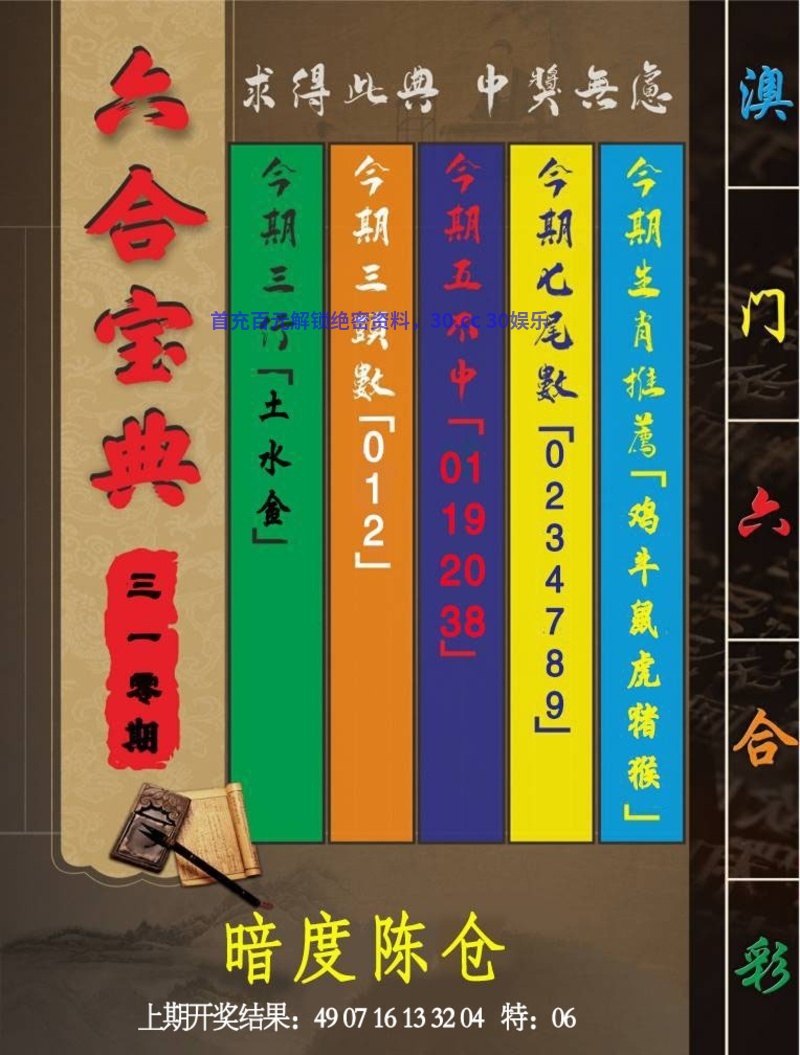 求得此典 中獎無慮
六合宝典
三一零期
今期三行「土水金」
今期三頭數「012」
今期五不中「01 19 20 38」
今期七尾數「0234789」
今期生肖推薦「鸡牛鼠虎猪猴」
澳门六合彩
首充百元解锁绝密资料，30.cc 30娱乐
暗度陈仓
上期开奖结果：49 07 16 13 32 04 特：06